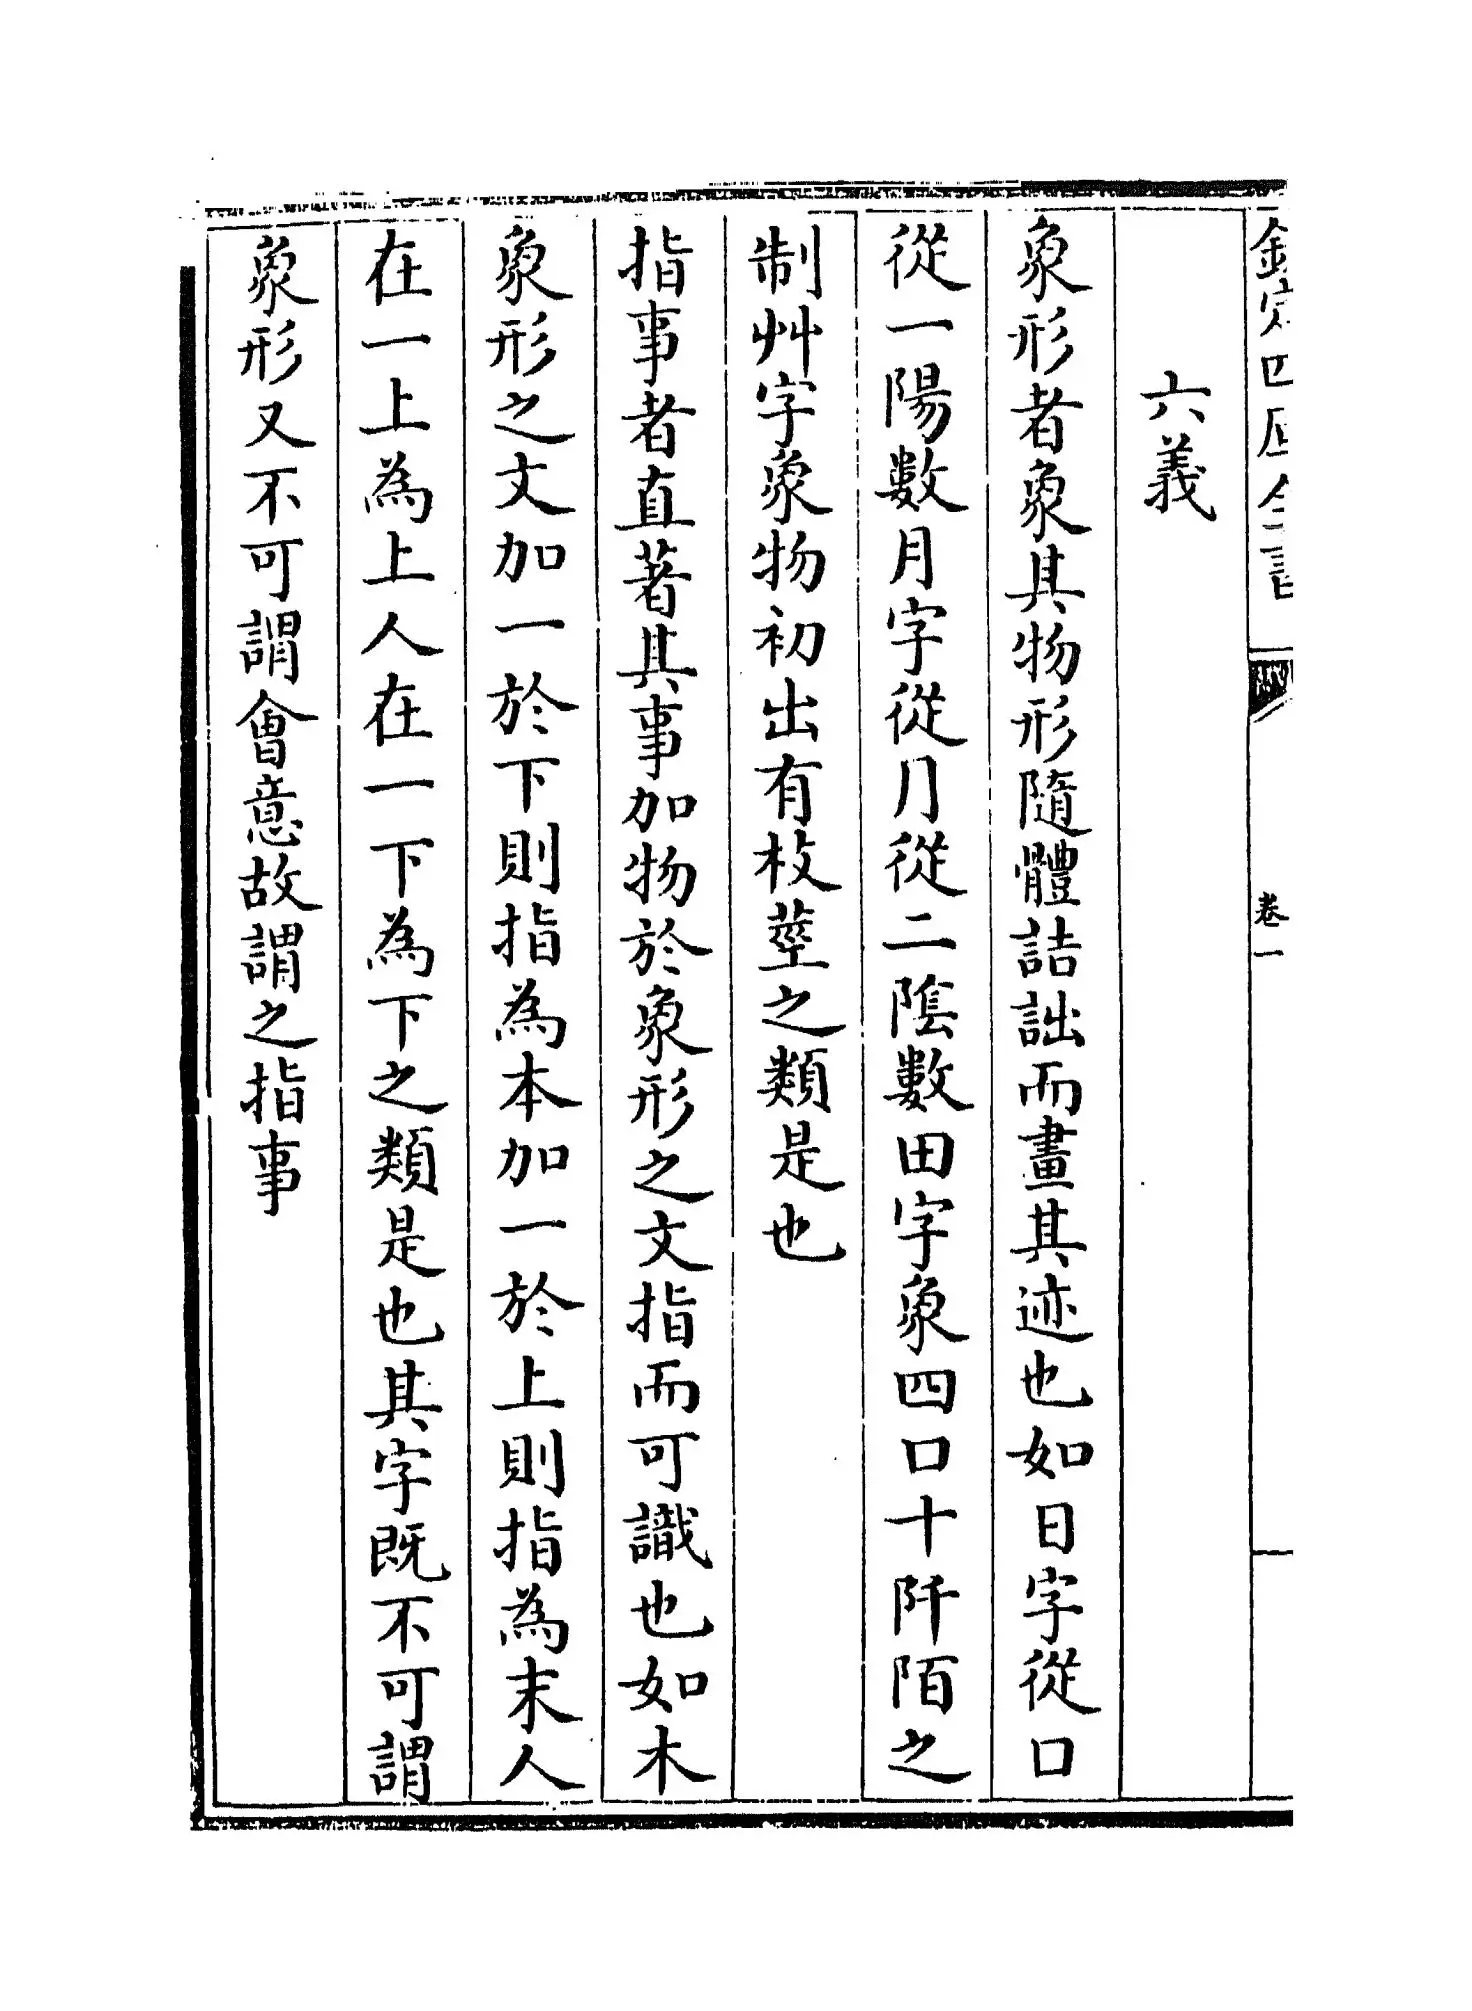 欽定四庫全書
卷一
六義
象形者象其物形隨體詰詘而畫其迹也如日字從口
從一陽數月字從⺆從二陰數田字象四口十阡陌之
制艸字象物初出有枝莖之類是也
指事者直著其事加物於象形之文指而可識也如木
象形之文加一於下則指為本加一於上則指為末人
在一上為上人在一下為下之類是也其字既不可謂
象形又不可謂會意故謂之指事